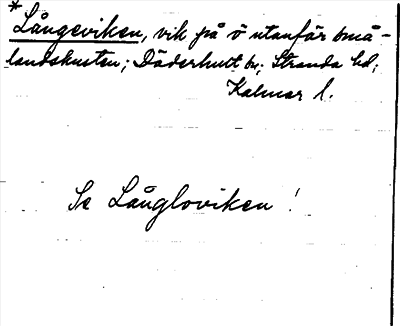 *
Långeviken, vik på ö utanför små-
landskusten; Döderhult sn; Stranda hd;
Kalmar l.
Se Långloviken!